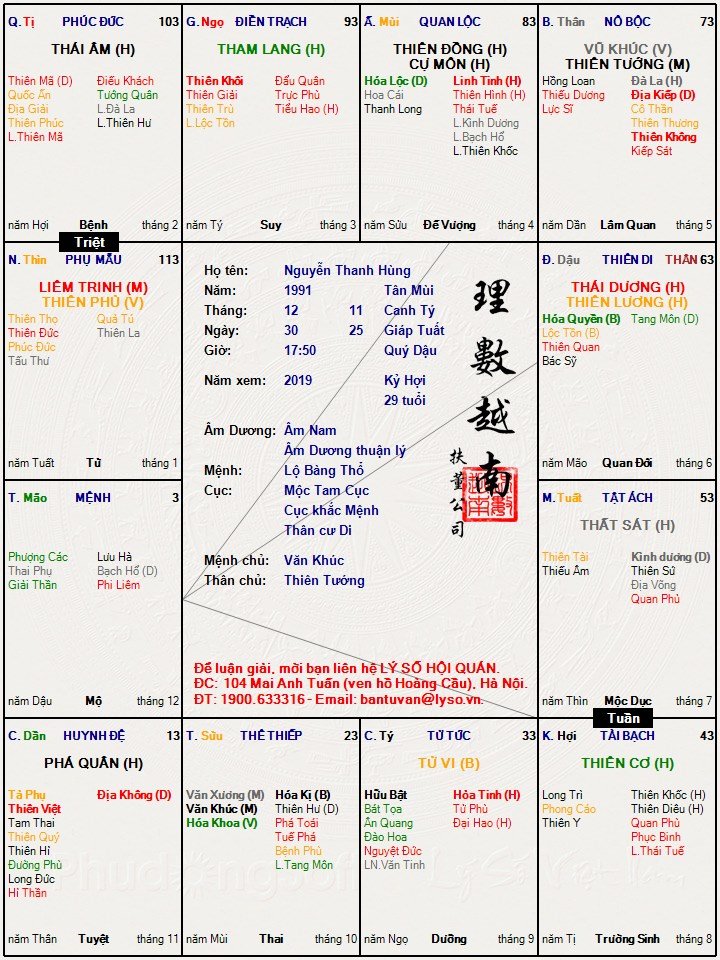 Q. Tị PHÚC ĐỨC 103
THÁI ÂM (H)
Thiên Mã (D) Điếu Khách
Quốc Ấn Tướng Quân
Địa Giải L.Đà La
Thiên Phúc L.Thiên Hư
L.Thiên Mã
năm Hợi Bệnh tháng 2
G. Ngọ ĐIỀN TRẠCH 93
THAM LANG (H)
Thiên Khôi Đẩu Quân
Thiên Giải Trực Phù
Thiên Trù Tiểu Hao (H)
L.Lộc Tồn
năm Tý Suy tháng 3
Ấ. Mùi QUAN LỘC 83
THIÊN ĐỒNG (H)
CỰ MÔN (H)
Hóa Lộc (D) Linh Tinh (H)
Hoa Cái Thiên Hình (H)
Thanh Long Thái Tuế
L.Kình Dương
L.Bạch Hổ
L.Thiên Khốc
năm Sửu Đế Vượng tháng 4
B. Thân NÔ BỘC 73
VŨ KHÚC (V)
THIÊN TƯỚNG (M)
Hồng Loan Đà La (H)
Thiếu Dương Địa Kiếp (D)
Lực Sĩ Cô Thần
Thiên Thương
Thiên Không
Kiếp Sát
năm Dần Lâm Quan tháng 5
Triệt
N. Thìn PHỤ MẪU 113
LIÊM TRINH (M)
THIÊN PHỦ (V)
Thiên Thọ Quả Tú
Thiên Đức Thiên La
Phúc Đức
Tấu Thư
năm Tuất Tử tháng 1
Họ tên: Nguyễn Thanh Hùng
Năm: 1991 Tân Mùi
Tháng: 12 11 Canh Tý
Ngày: 30 25 Giáp Tuất
Giờ: 17:50 Quý Dậu
Năm xem: 2019 Kỷ Hợi
29 tuổi
Âm Dương: Âm Nam
Âm Dương thuận lý
Mệnh: Lộ Bàng Thổ
Cục: Mộc Tam Cục
Cục khắc Mệnh
Thân cư Di
Mệnh chủ: Văn Khúc
Thân chủ: Thiên Tướng
理數越南
扶董公司
Để luận giải, mời bạn liên hệ LÝ SỐ HỘI QUÁN.
ĐC: 104 Mai Anh Tuấn (ven hồ Hoàng Cầu), Hà Nội.
ĐT: 1900.633316 - Email: bantuvan@lyso.vn.
Đ. Dậu THIÊN DI THÂN 63
THÁI DƯƠNG (H)
THIÊN LƯƠNG (H)
Hóa Quyền (B) Tang Môn (D)
Lộc Tồn (B)
Thiên Quan
Bác Sỹ
năm Mão Quan Đới tháng 6
T. Mão MỆNH 3
Phượng Các Lưu Hà
Thai Phụ Bạch Hổ (D)
Giải Thần Phi Liêm
năm Dậu Mộ tháng 12
M. Tuất TẬT ÁCH 53
THẤT SÁT (H)
Thiên Tài Kình dương (D)
Thiếu Âm Thiên Sứ
Địa Võng
Quan Phủ
năm Thìn Mộc Dục tháng 7
Tuần
C. Dần HUYNH ĐỆ 13
PHÁ QUÂN (H)
Tả Phụ Địa Không (D)
Thiên Việt
Tam Thai
Thiên Quý
Thiên Hỉ
Đường Phù
Long Đức
Hỉ Thần
năm Thân Tuyệt tháng 11
T. Sửu THÊ THIẾP 23
Văn Xương (M) Hóa Kị (B)
Văn Khúc (M) Thiên Hư (D)
Hóa Khoa (V) Phá Toái
Tuế Phá
Bệnh Phù
L.Tang Môn
năm Mùi Thai tháng 10
C. Tý TỬ TỨC 33
TỬ VI (B)
Hữu Bật Hỏa Tinh (H)
Bát Tọa Tử Phù
Ân Quang Đại Hao (H)
Đào Hoa
Nguyệt Đức
LN.Văn Tinh
năm Ngọ Dưỡng tháng 9
K. Hợi TÀI BẠCH 43
THIÊN CƠ (H)
Long Trì Thiên Khốc (H)
Phong Cáo Thiên Diêu (H)
Thiên Y Quan Phù
Phục Binh
L.Thái Tuế
năm Tị Trường Sinh tháng 8